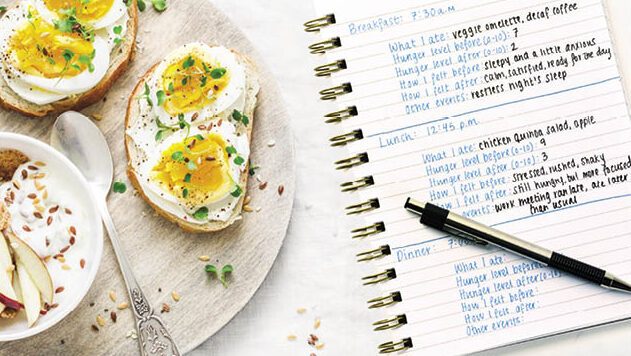 Breakfast: 7:30 a.m
What I ate: veggie omelette, decaf coffee
Hunger level before (0-10): 7
Hunger level after (0-10): 2
How I felt before: sleepy and a little anxious
How I felt after: calm, satisfied, ready for the day
Other events: restless night's sleep
Lunch: 12:45 p.m.
What I ate: chicken quinoa salad, apple
Hunger level before (0-10): 9
Hunger level after (0-10): 3
How I felt before: stressed, rushed, shaky
How I felt after: still hungry, but more focused
events: work meeting ran late, ate later
than usual
Dinner: 7:0
What I ate:
Hunger level before (0-10)
Hunger level after (0-10)
How I felt before:
How I felt after
Other events: